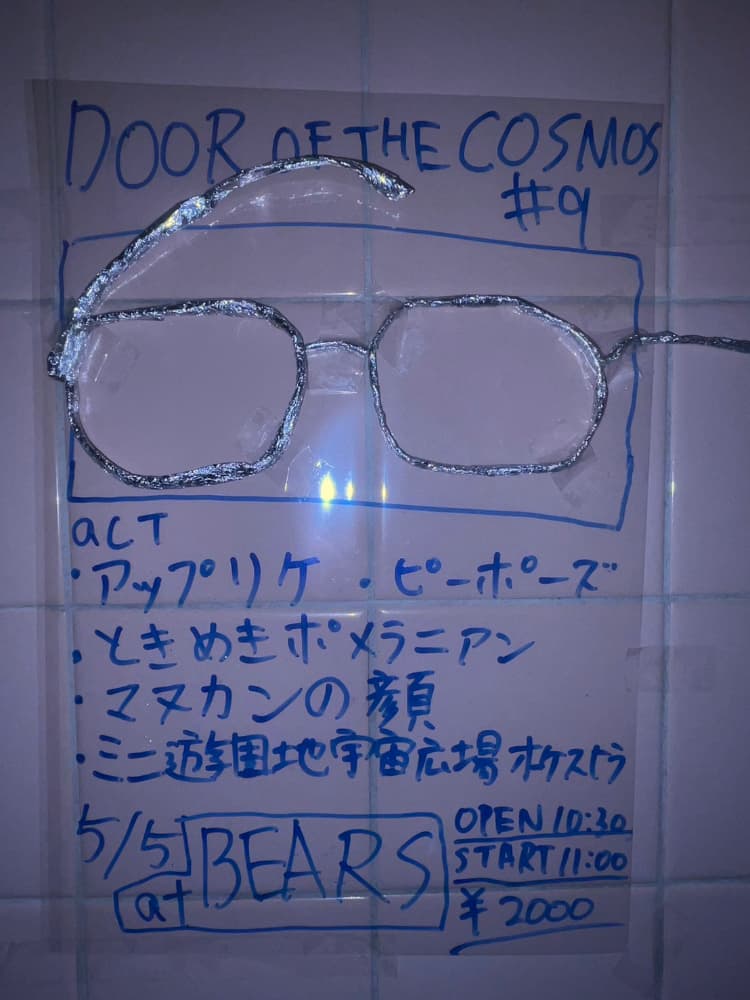 DOOR OF THE COSMOS
#9
act
・アップリケ ・ピーポーズ
・ときめきポメラニアン
・マヌカンの顔
・ミニ遊園地宇宙広場オケストラ
5/5
at BEARS
OPEN 10:30
START 11:00
¥2000